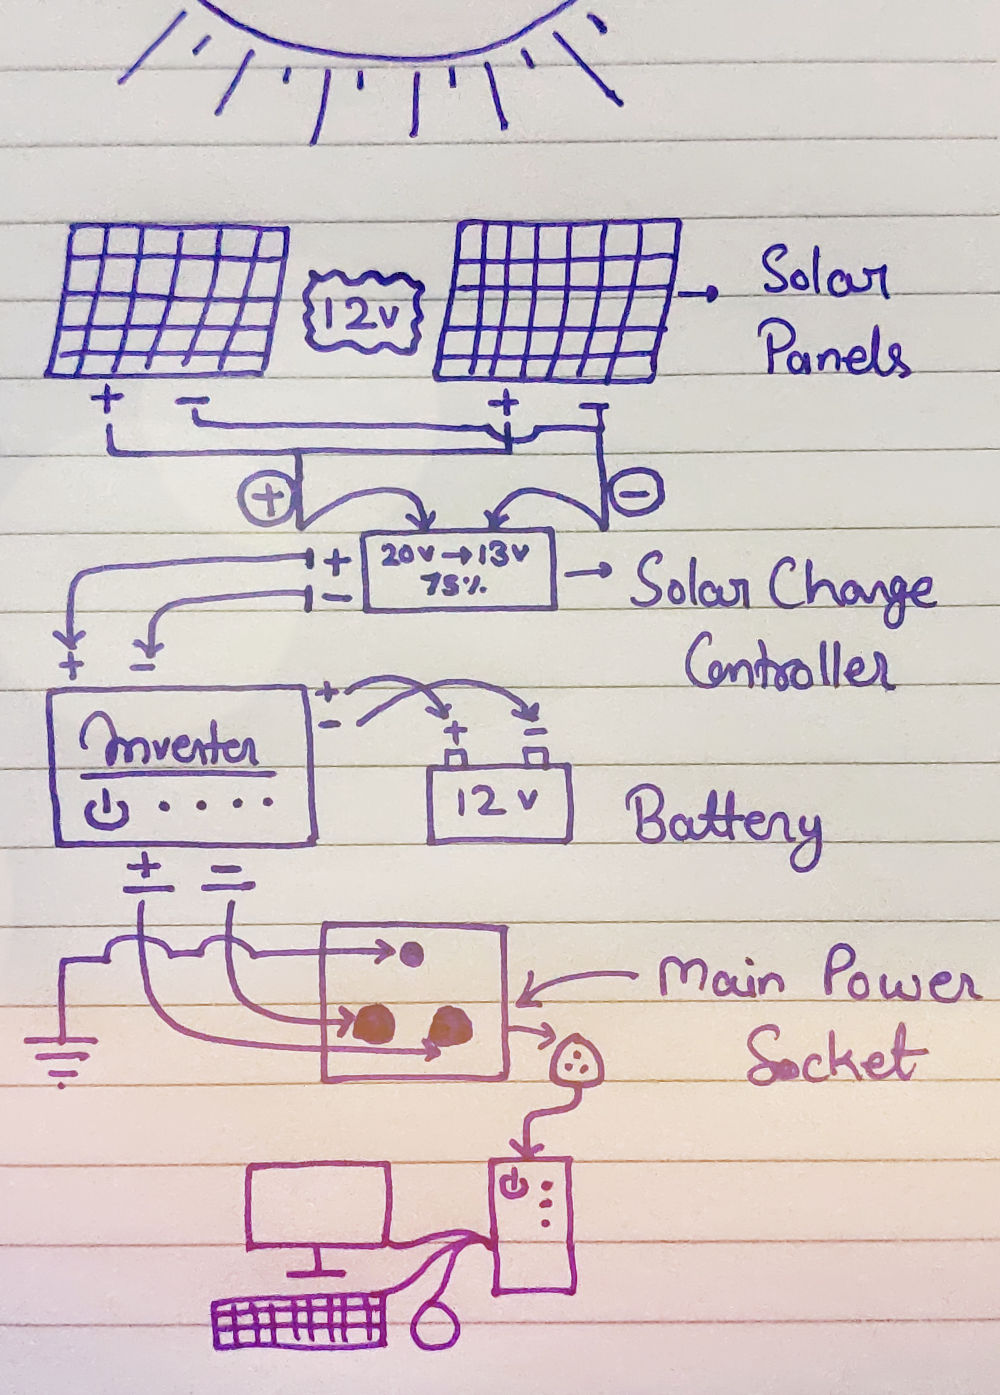 12v
Solar
Panels
+ − + −
+ −
20v→13v
75%
+
−
Solar Charge
Controller
+ −
Inverter
+
−
+ −
12 v
Battery
+ −
Main Power
Socket